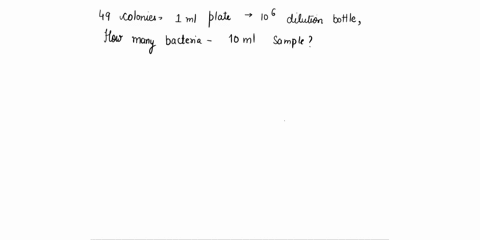 49 colonies - 1 ml plate → 10⁶ dilution bottle,
How many bacteria - 10 ml sample?